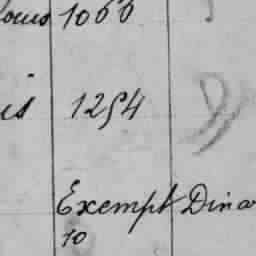 1066
is 1254
Exempt Dina
10